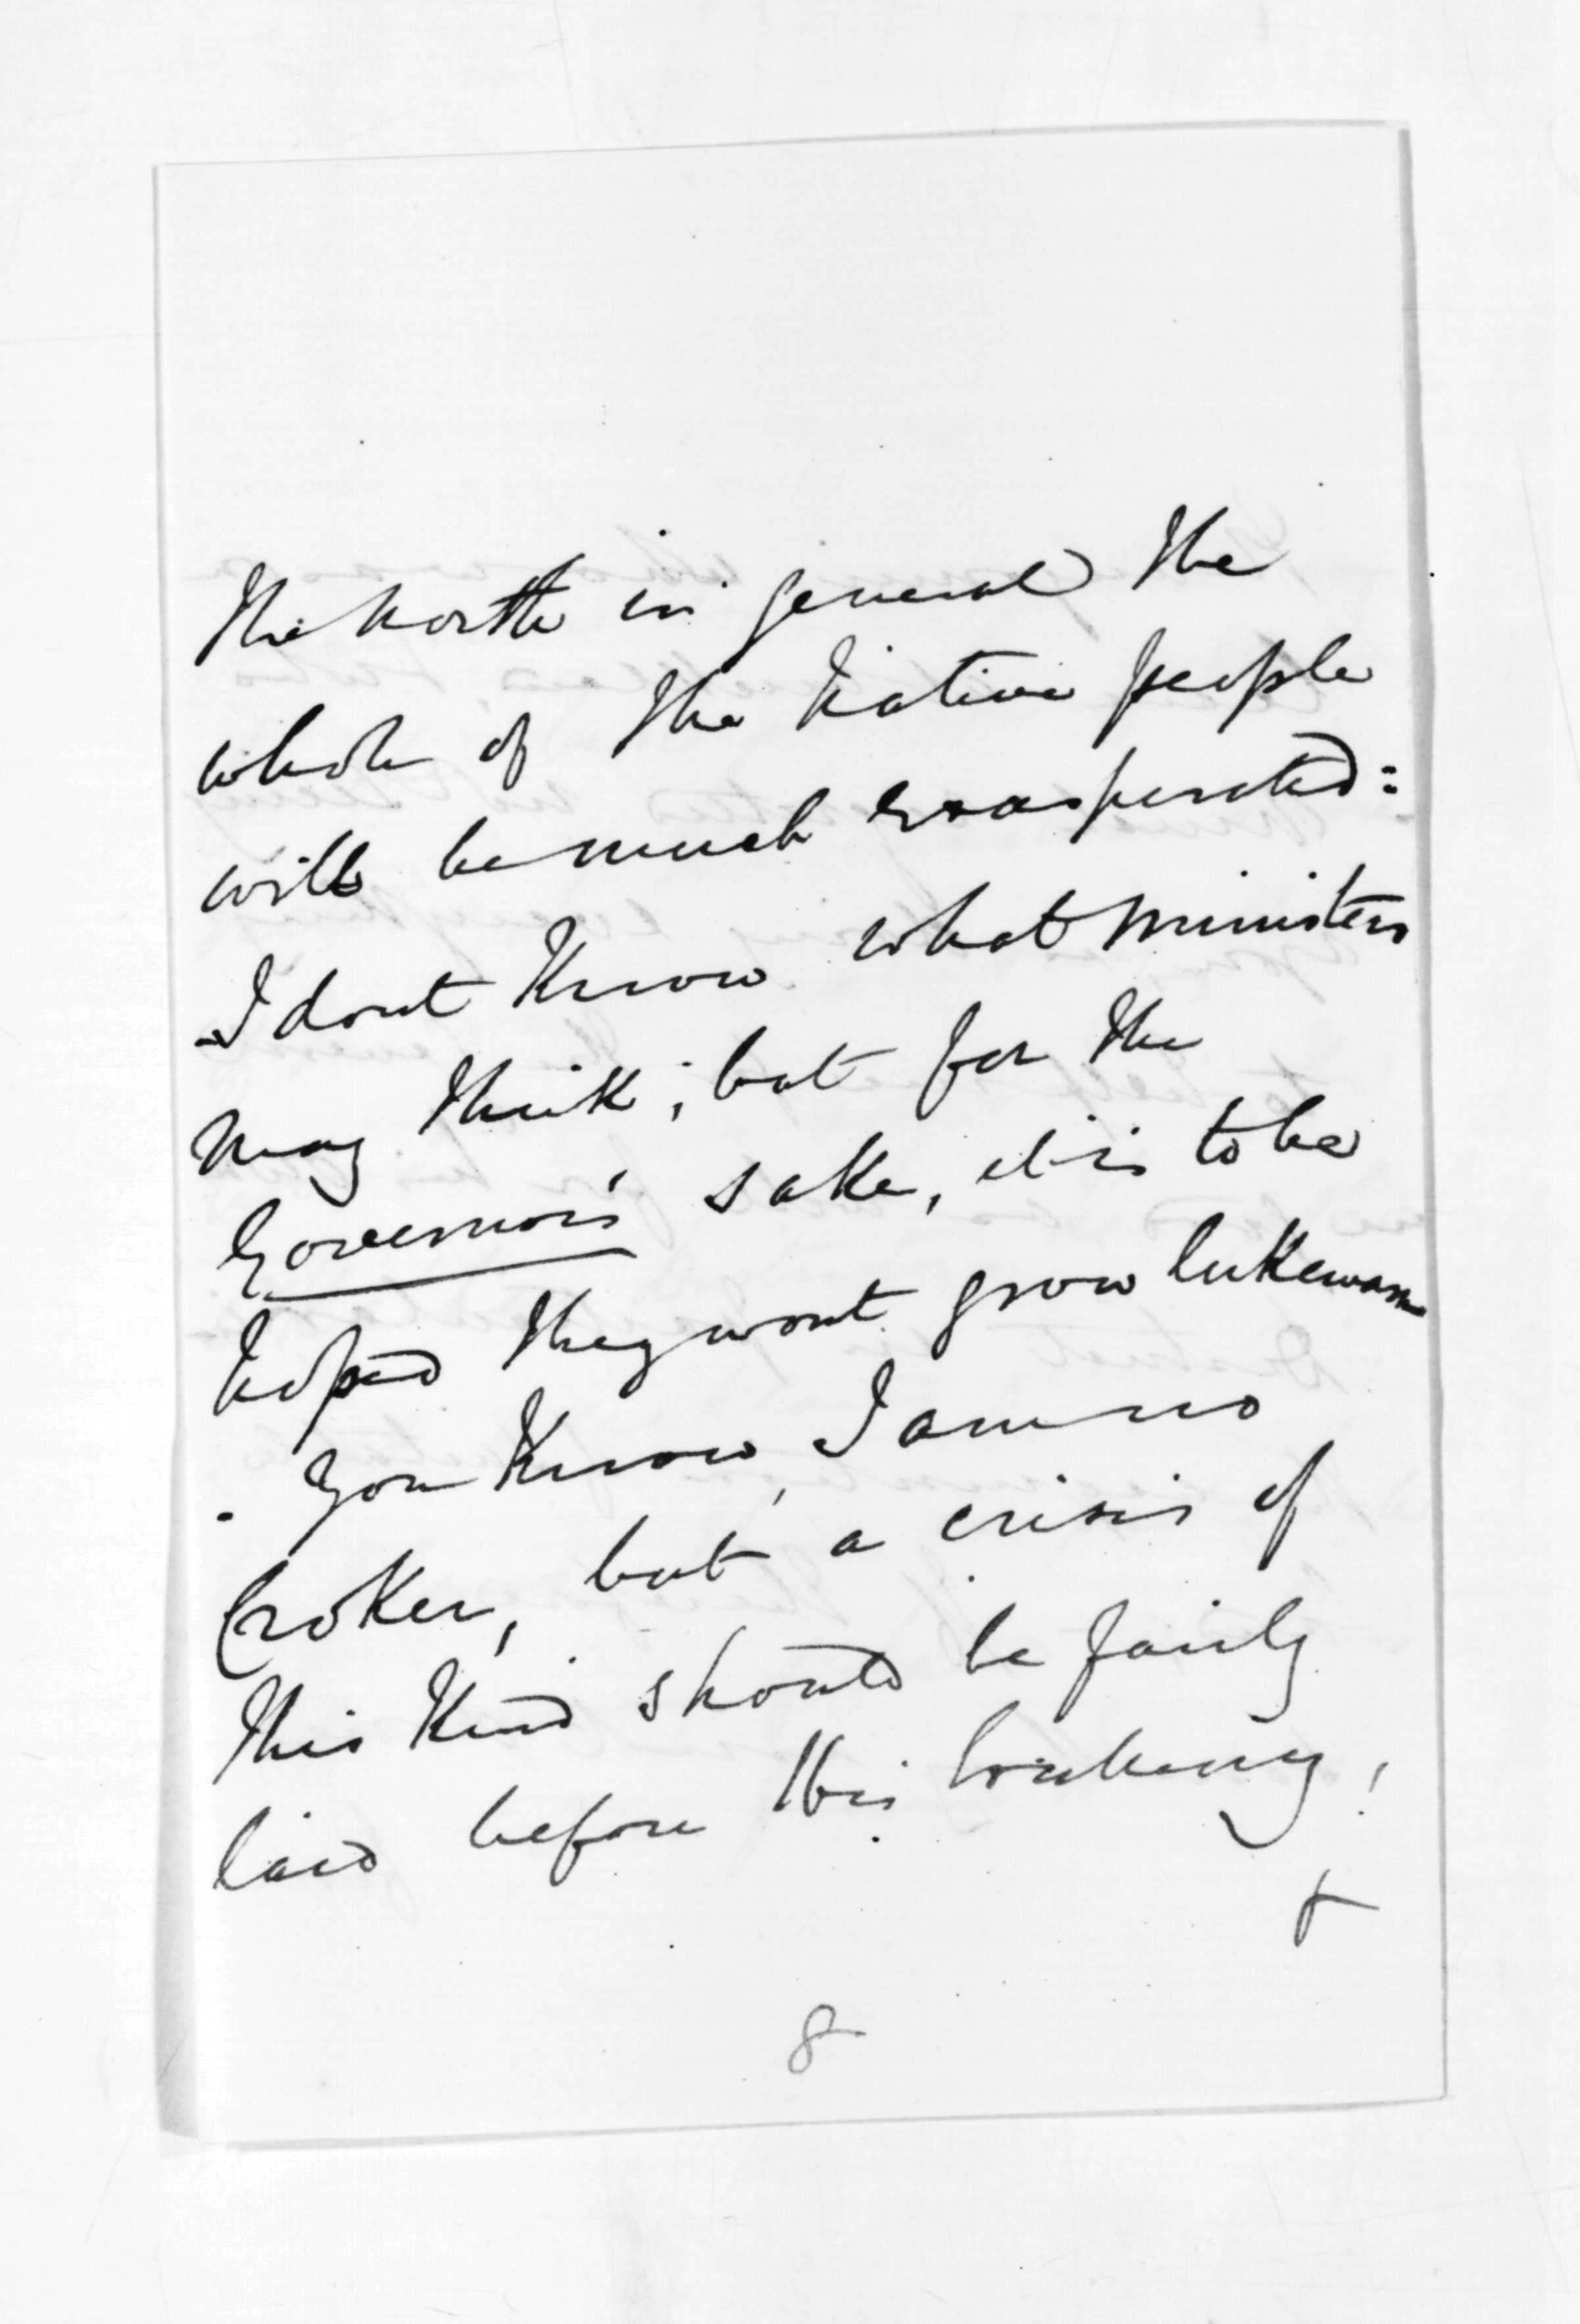 the North in general the
whole of the Native people
will be much exasperated:
I dont Know what Ministers
may think; but for the
Governor's sake, it is to be
hoped they wont grow lukewarm
. You Know, I am no
Croker, but a crisis of
this Kind should be fairly
laid before His
8